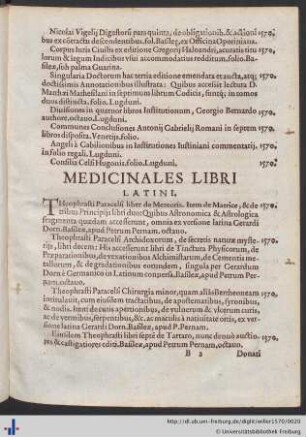 Nicolai Vigelij Digestorũ pars quinta, de obligationib. & actioni 1570.
bus ex cõtractu descendentibus. fol. Basileę, ex Officina Oporiniana.
Corpus Iuris Ciuilis ex editione Gregorij Haloandri, accuratis titu 1570.
lorum & legum Indicibus vsui accommodatius redditum. folio. Ba-
sileę, sub palma Guarina.
Singularia Doctorum hac tertia editione emendata et aucta, atq; 1570.
doctissimis Annotationibus illustrata: Quibus accessit lectura D.
Matthæi Mathesilani in septimum librum Codicis, sunt�q; in tomos
duos distincta. folio. Lugduni.
Diuisiones in quatuor libros Institutionum, Georgio Bernardo 1570.
authore. octauo. Lugduni.
Communes Conclusiones Antonij Gabrielij Romani in septem 1570.
libros disposita. Venetijs. folio.
Angeli à Cabilionibus in Institutiones Iustiniani commentarij. 1570.
in folio regali. Lugduni.
Consilia Celsi Hugonis. folio. Lugduni. 1570.
MEDICINALES LIBRI
LATINI.
THeophrasti Paracelsi liber de Meteoris. Item de Matrice, & de 1570.
tribus Principijs libri duo: Quibus Astronomica & Astrologica
fragmenta quædam accesserunt, omnia ex versione latina Gerardi
Dorn. Basileæ, apud Petrum Pernam. octauo.
Theophrasti Paracelsi Archidoxorum, de secretis naturæ myste- 1570.
rijs, libri decem: His accesserunt libri de Tinctura Physicorum, de
Præparationibus, de vexationibus Alchimistarum, de Cementis me-
tallorum, & de gradationibus eorundem, singula per Gerardum
Dorn è Germanico in Latinum conuersa. Basileæ, apud Petrum Per-
nam. octauo.
Theophrasti Paracelsi Chirurgia minor, quam aliàs Bertheoneam 1570.
intitulauit, cum eiusdem tractatibus, de apostematibus, syronibus,
& nodis. Item de cutis apertionibus, de vulnerum & vlcerum curis,
ac de vermibus, serpentibus, &c. ac maculis à natiuitate ortis, ex ver
sione latina Gerardi Dorn. Basileæ, apud P. Pernam.
Eiusdem Theophrasti libri septẽ de Tartaro, nunc denuò auctio- 1570.
res & castigatiores editi. Basileæ, apud Petrum Pernam. octauo.
B 2 Donati
http://dl.ub.uni-freiburg.de/diglit/willer1570/0020
© Universitätsbibliothek Freiburg